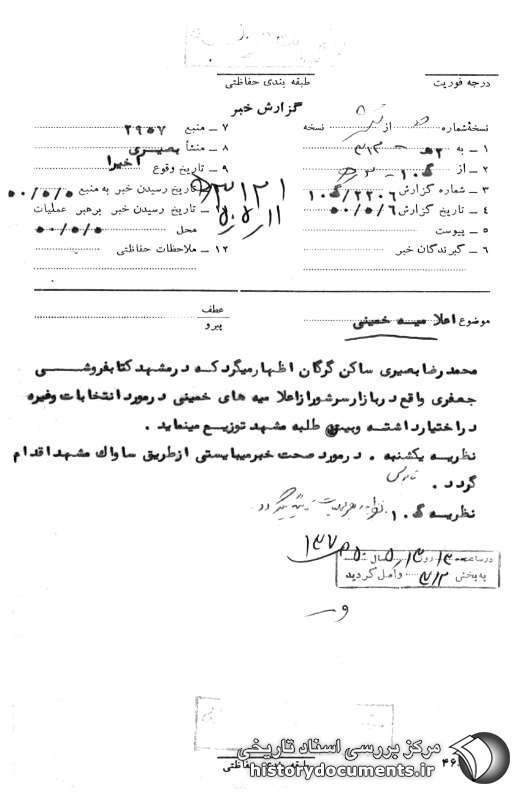 درجه فوریت
طبقه بندی حفاظتی
گزارش خبر
نسخهٔ شماره از شش نسخه
۱ ــ به ۳۱۲
۲ ــ از گ ۱۰
۳ ــ شماره گزارش ۲۲۰۶/گ ۱۰
۴ ــ تاریخ گزارش ۵۰/۵/۶
۵ ــ پیوست
۶ ــ گیرندگان خبر
۷ ــ منبع ۲۹۵۷
۸ ــ منشأ بصیری
۹ ــ تاریخ وقوع اخیرا
تاریخ رسیدن خبر به منبع ۵۰/۵/۵
تاریخ رسیدن خبر برهبر عملیات
محل ۵۰/۵/۵
۱۲ ــ ملاحظات حفاظتی
موضوع اعلامیه خمینی
عطف
پیرو
محمد رضا بصیری ساکن گرگان اظهار میگرد که در مشهد کتابفروشی
جعفری واقع در بازار سرشور از اعلامیه های خمینی در مورد انتخابات وغیره
در اختیار داشته وبین طلبه مشهد توزیع مینماید .
نظریه یکشنبه . در مورد صحت خبر میبایستی از طریق ساواك مشهد اقدام
گردد .
نظریه گ ۱۰ .
در ساعت روز سال
به بخش ۳۱۲ واصل گردید
طبقه بندی حفاظتی
مرکز بررسی اسناد تاریخی
historydocuments.ir